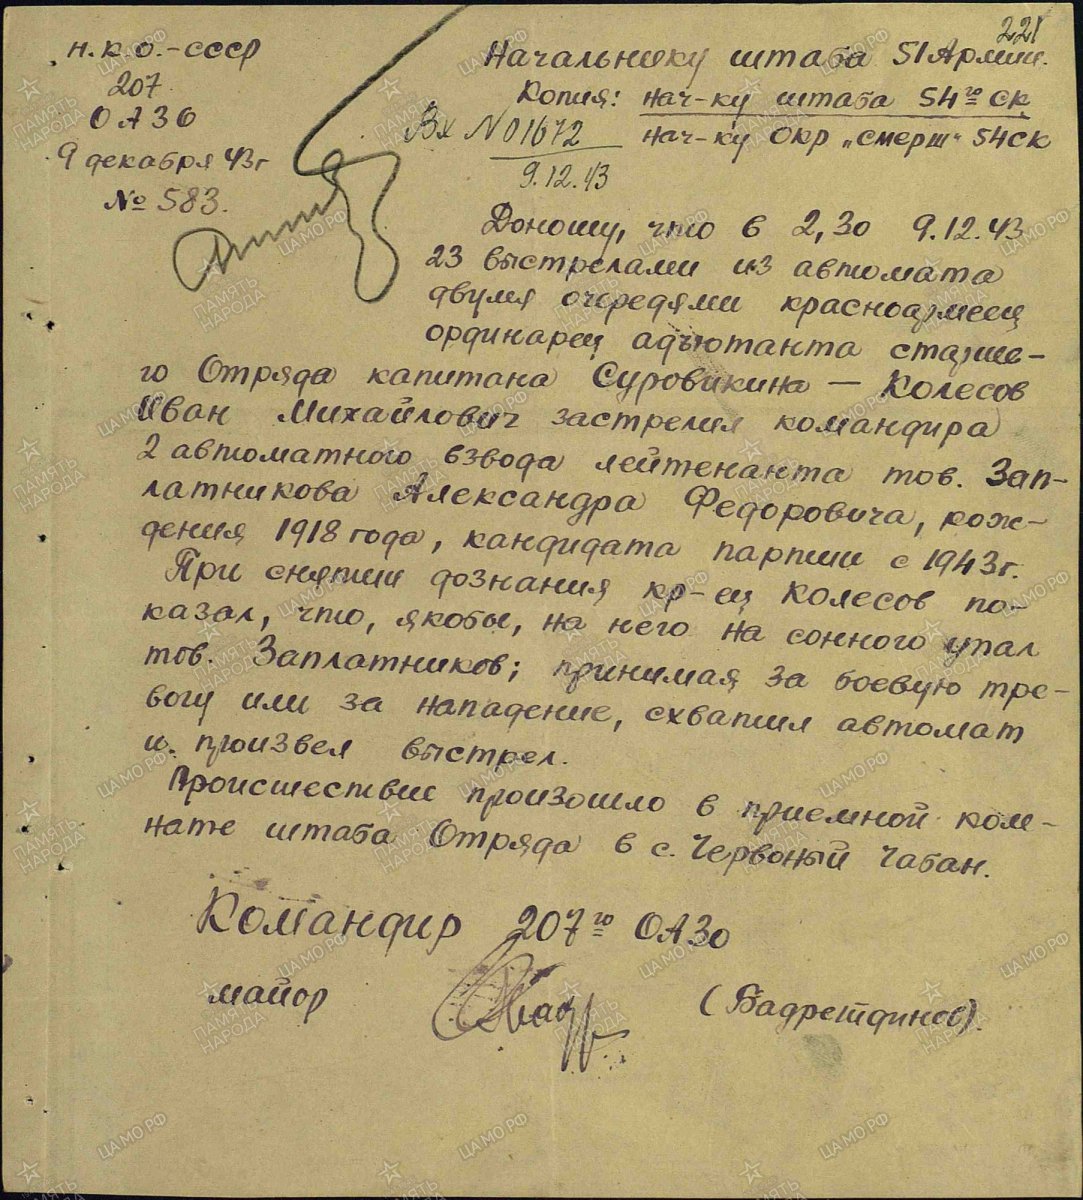 221
Н.К.О.-СССР
207
ОАЗО
9 декабря 43г
№ 583.
Начальнику штаба 51 Армии.
Копия: нач-ку штаба 54го СК
нач-ку ОКР „Смерш" 54СК
Вх №01672
9.12.43
Доношу, что в 2,30 9.12.43
23 выстрелами из автомата
двумя очередями красноармеец
ординарец адъютанта старше-
го Отряда капитана Суровикина — Колесов
Иван Михайлович застрелил командира
2 автоматного взвода лейтенанта тов. Зап-
латникова Александра Федоровича, рож-
дения 1918 года, кандидата партии с 1943г.
При снятии дознания кр-ец Колесов по-
казал, что, якобы, на него на сонного упал
тов. Заплатников; принимая за боевую тре-
вогу или за нападение, схватил автомат
и произвел выстрел.
Происшествие произошло в приемной ком-
нате штаба Отряда в с. Червоный Чабан.
Командир 207го ОАЗО
майор
(Бадретдинов).
ПАМЯТЬ НАРОДА
ЦА МО РФ